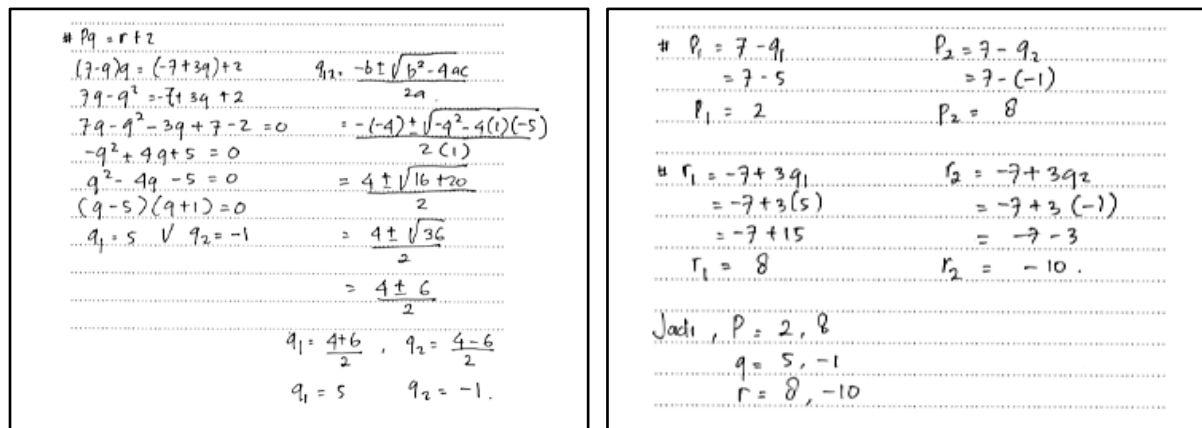 # Pq = r+2
(7-q)q = (-7+3q)+2
7q-q² = -7+3q+2
7q-q²-3q+7-2 = 0
-q²+4q+5 = 0
q²-4q-5 = 0
(q-5)(q+1) = 0
q₁ = 5 V q₂ = -1
q₁₂ = (-b ± √(b²-4ac))/2a
= (-(-4) ± √(-4²-4(1)(-5)))/2(1)
= (4 ± √(16+20))/2
= (4 ± √36)/2
= (4 ± 6)/2
q₁ = (4+6)/2 , q₂ = (4-6)/2
q₁ = 5 q₂ = -1.
# P₁ = 7-q₁
= 7-5
P₁ = 2
P₂ = 7-q₂
= 7-(-1)
P₂ = 8
# r₁ = -7+3q₁
= -7+3(5)
= -7+15
r₁ = 8
r₂ = -7+3q₂
= -7+3(-1)
= -7-3
r₂ = -10.
Jadi, P = 2, 8
q = 5, -1
r = 8, -10